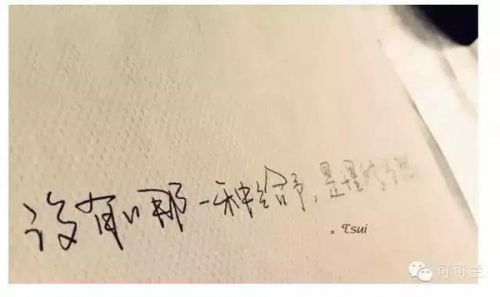 没有哪一种给予，是理所当然
Tsui
可可兰